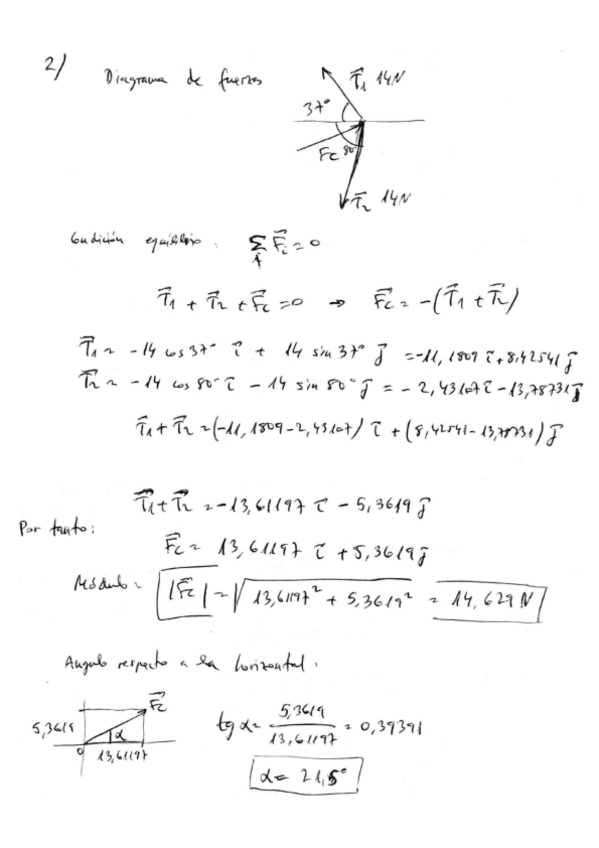 2/ Diagrama de fuerzas
T₁ 14N
37°
Fc 80°
T₂ 14N
Condición equilibrio: Σ F⃗i = 0
T⃗₁ + T⃗₂ + F⃗c = 0 → F⃗c = -(T⃗₁ + T⃗₂)
T⃗₁ = -14 cos 37° i⃗ + 14 sin 37° j⃗ = -11,1809 i⃗ + 8,42541 j⃗
T⃗₂ = -14 cos 80° i⃗ - 14 sin 80° j⃗ = -2,43107 i⃗ - 13,78731 j⃗
T⃗₁ + T⃗₂ = (-11,1809 - 2,43107) i⃗ + (8,42541 - 13,78731) j⃗
T⃗₁ + T⃗₂ = -13,61197 i⃗ - 5,3619 j⃗
Por tanto:
F⃗c = 13,61197 i⃗ + 5,3619 j⃗
Módulo: |F⃗c| = √13,61197² + 5,3619² = 14,629 N
Angulo respecto a la horizontal:
F⃗c
5,3619
α
0
13,61197
tg α = 5,3619 / 13,61197 = 0,39391
α = 21,5°